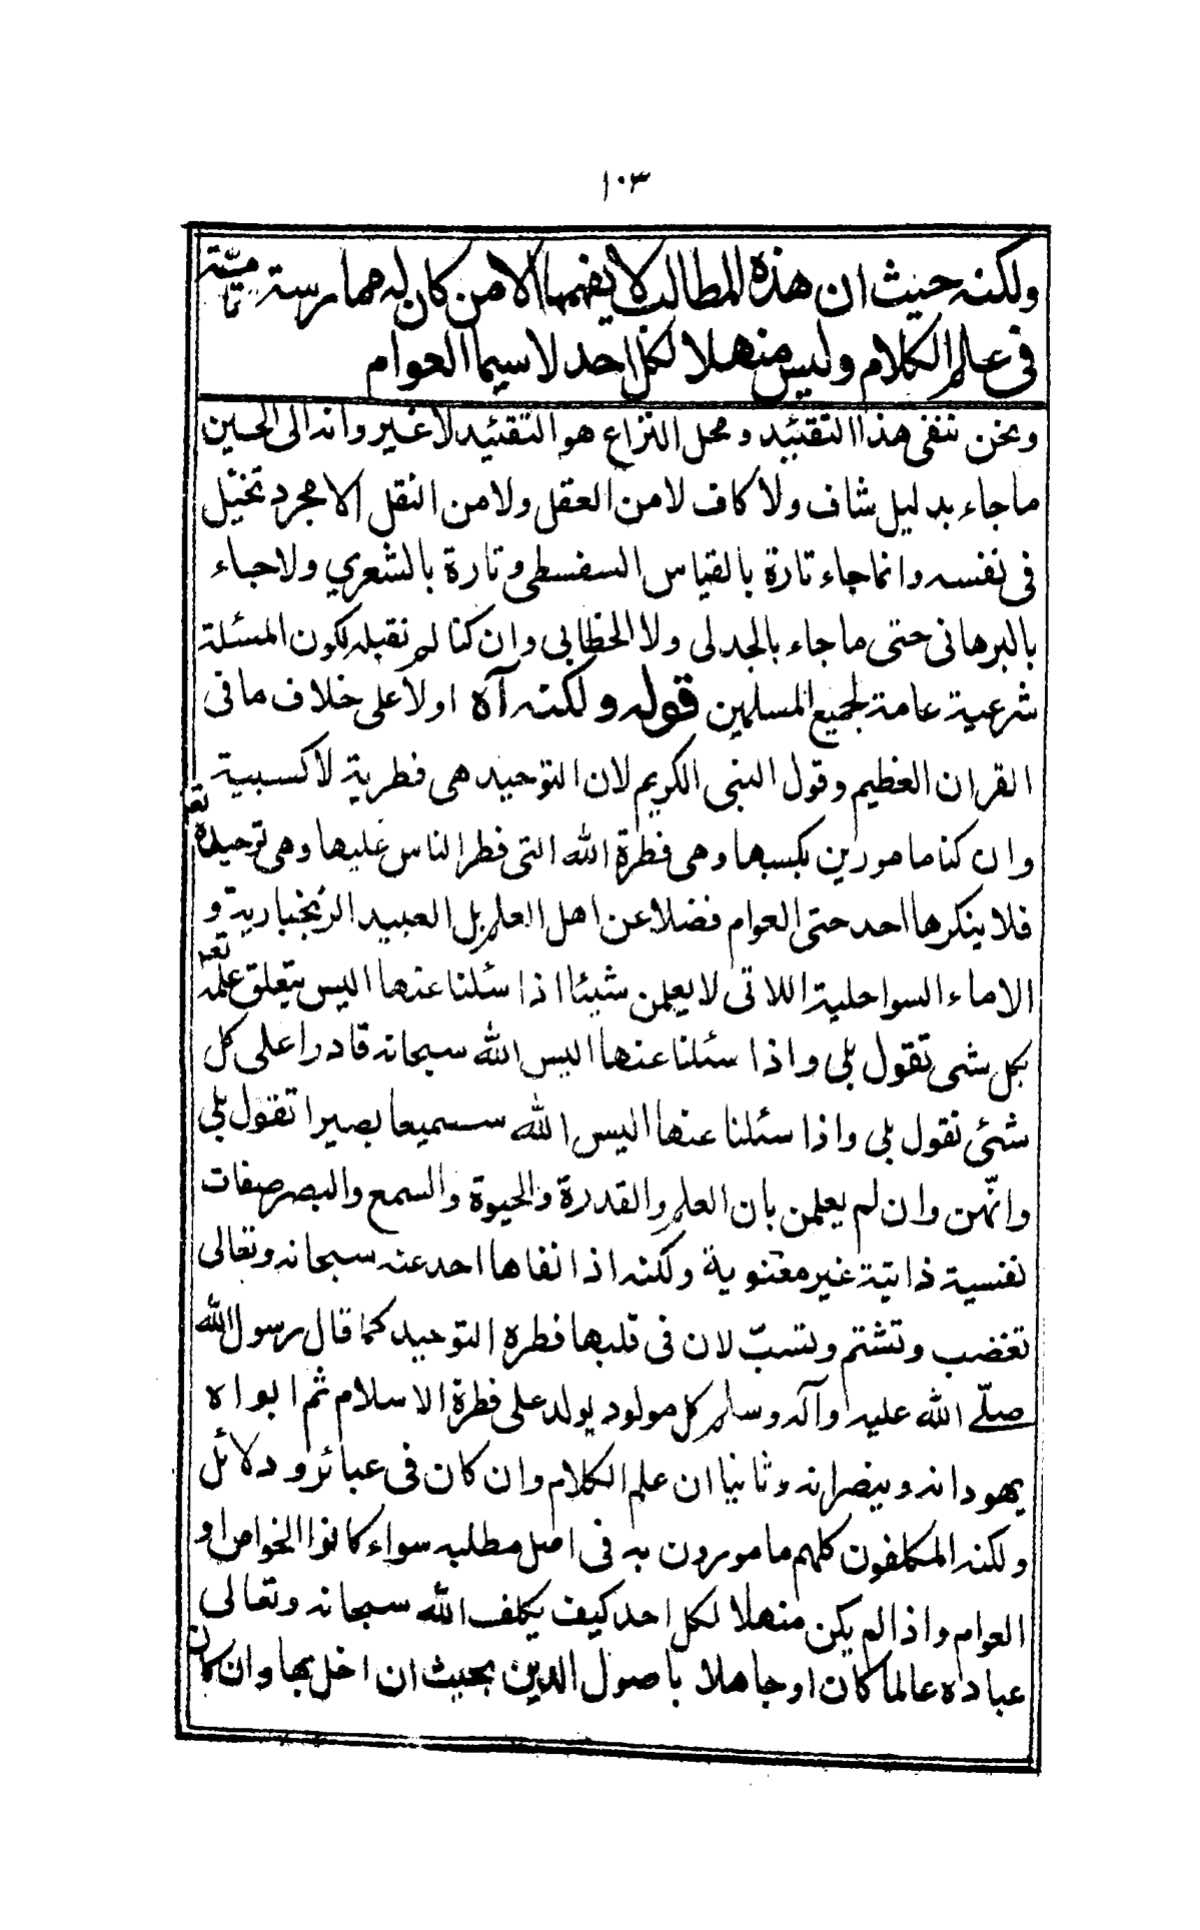 ١٠٣
ولكنه حيث ان هذه المطالب لا يفهمها الا من كان له ممارسة تامّة
فى علم الكلام وليس منهلا لكل احد لا سيما العوام
ونحن ننفى هذا التقئيد ومحل النزاع هو التقئيد لا غير وانه الى الحين
ما جاء بدليل شاف ولا كاف لا من العقل ولا من النقل الا مجرد تخيّل
فى نفسه وانما جاء تارة بالقياس السفسطى وتارة بالشعري ولا جاء
بالبرهانى حتى ما جاء بالجدلى ولا الخطابى وان كنا لم نقبله لكون المسئلة
شرعية عامة لجميع المسلمين قوله ولكنه آه اولا على خلاف ما فى
القران العظيم وقول النبى الكريم لان التوحيد هى فطرية لا كسبية
وان كنا مامورين بكسبها وهى فطرة الله التى فطر الناس عليها وهى توحيده تع
فلا ينكرها احد حتى العوام فضلا عن اهل العلم بل العبيد الزنجبارية و
الاماء السواحلية اللاتى لا يعلمن شيئا اذا سئلنا عنها اليس يتعلق علمه تع
بكل شى تقول بلى واذا سئلنا عنها اليس الله سبحانه قادرا على كل
شئ تقول بلى واذا سئلنا عنها اليس الله سميعا بصيرا تقول بلى
وانّهن وان لم يعلمن بان العلم والقدرة والحيوة والسمع والبصر صفات
نفسية ذاتية غير معنوية ولكنه اذا نفاها احد عنه سبحانه وتعالى
تغضب وتشتم وتسبّ لان فى قلبها فطرة التوحيد كما قال رسول الله
صلّى الله عليه وآله وسلم كل مولود يولد على فطرة الاسلام ثم ابواه
يهودانه وينصرانه وثانيا ان علم الكلام وان كان فى عبائر ودلائل
ولكنه المكلفون كلهم مامورون به فى اصل مطلبه سواء كانوا الخواص او
العوام واذا لم يكن منهلا لكل احد كيف يكلف الله سبحانه وتعالى
عباده عالما كان او جاهلا باصول الدين بحيث ان اخل بها وان كان